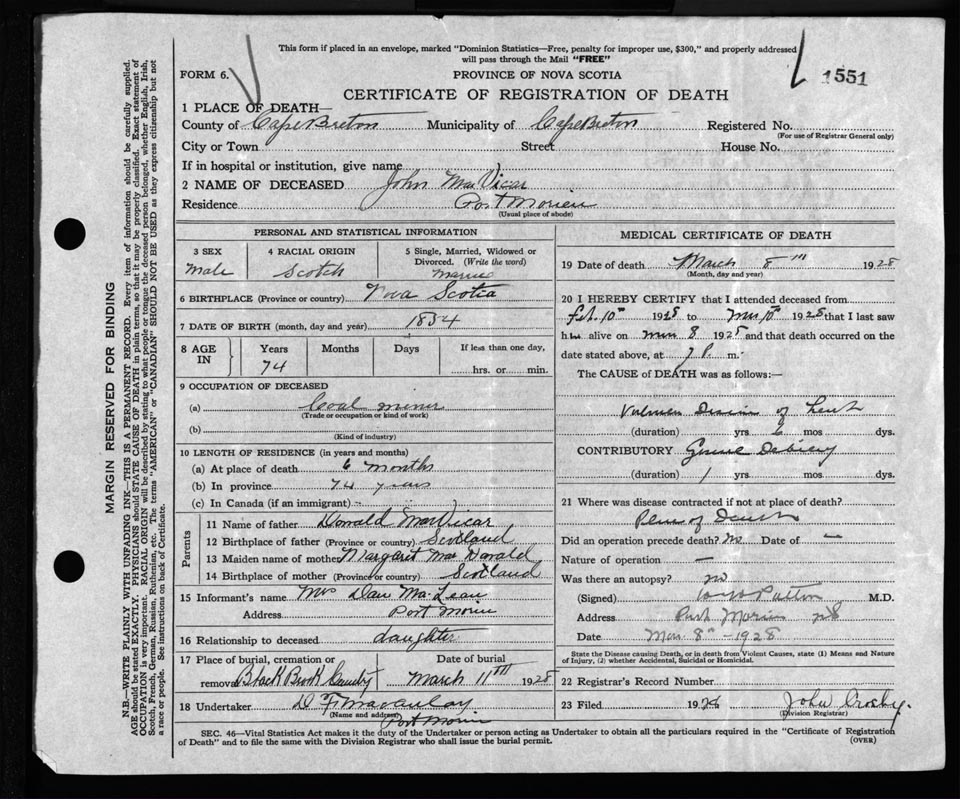 This form if placed in an envelope, marked "Dominion Statistics—Free, penalty for improper use, $300," and properly addressed
will pass through the Mail "FREE"
FORM 6.
PROVINCE OF NOVA SCOTIA
1551
CERTIFICATE OF REGISTRATION OF DEATH
1 PLACE OF DEATH—
County of Cape Breton Municipality of Cape Breton Registered No.
(For use of Registrar General only)
City or Town Street House No.
If in hospital or institution, give name
2 NAME OF DECEASED John MacVicar
Residence Port Morien
(Usual place of abode)
PERSONAL AND STATISTICAL INFORMATION
3 SEX 4 RACIAL ORIGIN 5 Single, Married, Widowed or Divorced. (Write the word)
Male Scotch
6 BIRTHPLACE (Province or country) Nova Scotia
7 DATE OF BIRTH (month, day and year) 1854
8 AGE IN Years Months Days If less than one day,
74 hrs. or min.
9 OCCUPATION OF DECEASED
(a) Coal miner
(Trade or occupation or kind of work)
(b)
(Kind of industry)
10 LENGTH OF RESIDENCE (in years and months)
(a) At place of death 6 months
(b) In province 74 years
(c) In Canada (if an immigrant)
Parents
11 Name of father Donald MacVicar
12 Birthplace of father (Province or country) Scotland
13 Maiden name of mother Margaret MacDonald
14 Birthplace of mother (Province or country) Scotland
15 Informant's name Mrs Dan MacLean
Address Port Morien
16 Relationship to deceased daughter
17 Place of burial, cremation or removal Date of burial
Black Brook March 11th 1928
18 Undertaker
(Name and address)
Port Morien
MEDICAL CERTIFICATE OF DEATH
19 Date of death March 8th 1928
(Month, day and year)
20 I HEREBY CERTIFY that I attended deceased from
Feb. 10th 1928 to 1928 that I last saw
him alive on Mar 8 1928 and that death occurred on the
date stated above, at 7 P. m.
The CAUSE of DEATH was as follows:—
of heart
(duration) yrs 2 mos dys.
CONTRIBUTORY General Debility
(duration) 1 yrs mos dys.
21 Where was disease contracted if not at place of death?
Place of Death
Did an operation precede death? no Date of —
Nature of operation —
Was there an autopsy? no
(Signed) Patton M.D.
Address Port Morien NS
Date Mar. 8th - 1928
State the Disease causing Death, or in death from Violent Causes, state (1) Means and Nature
of Injury, (2) whether Accidental, Suicidal or Homicidal.
22 Registrar's Record Number
23 Filed 1928 John Crosby.
(Division Registrar)
SEC. 46—Vital Statistics Act makes it the duty of the Undertaker or person acting as Undertaker to obtain all the particulars required in the "Certificate of Registration
of Death" and to file the same with the Division Registrar who shall issue the burial permit.
(OVER)
MARGIN RESERVED FOR BINDING
N.B.—WRITE PLAINLY WITH UNFADING INK—THIS IS A PERMANENT RECORD. Every item of information should be carefully supplied.
AGE should be stated EXACTLY. PHYSICIANS should STATE CAUSE OF DEATH in plain terms, so that it may be properly classified. Exact statement of
OCCUPATION is very important. RACIAL ORIGIN will be described by stating to what people or tongue the deceased person belonged, whether English, Irish,
Scotch, French, German, Russian, Ruthenian, etc. The terms "AMERICAN" or "CANADIAN" SHOULD NOT BE USED as they express citizenship but not
a race or people. See instructions on back of Certificate.